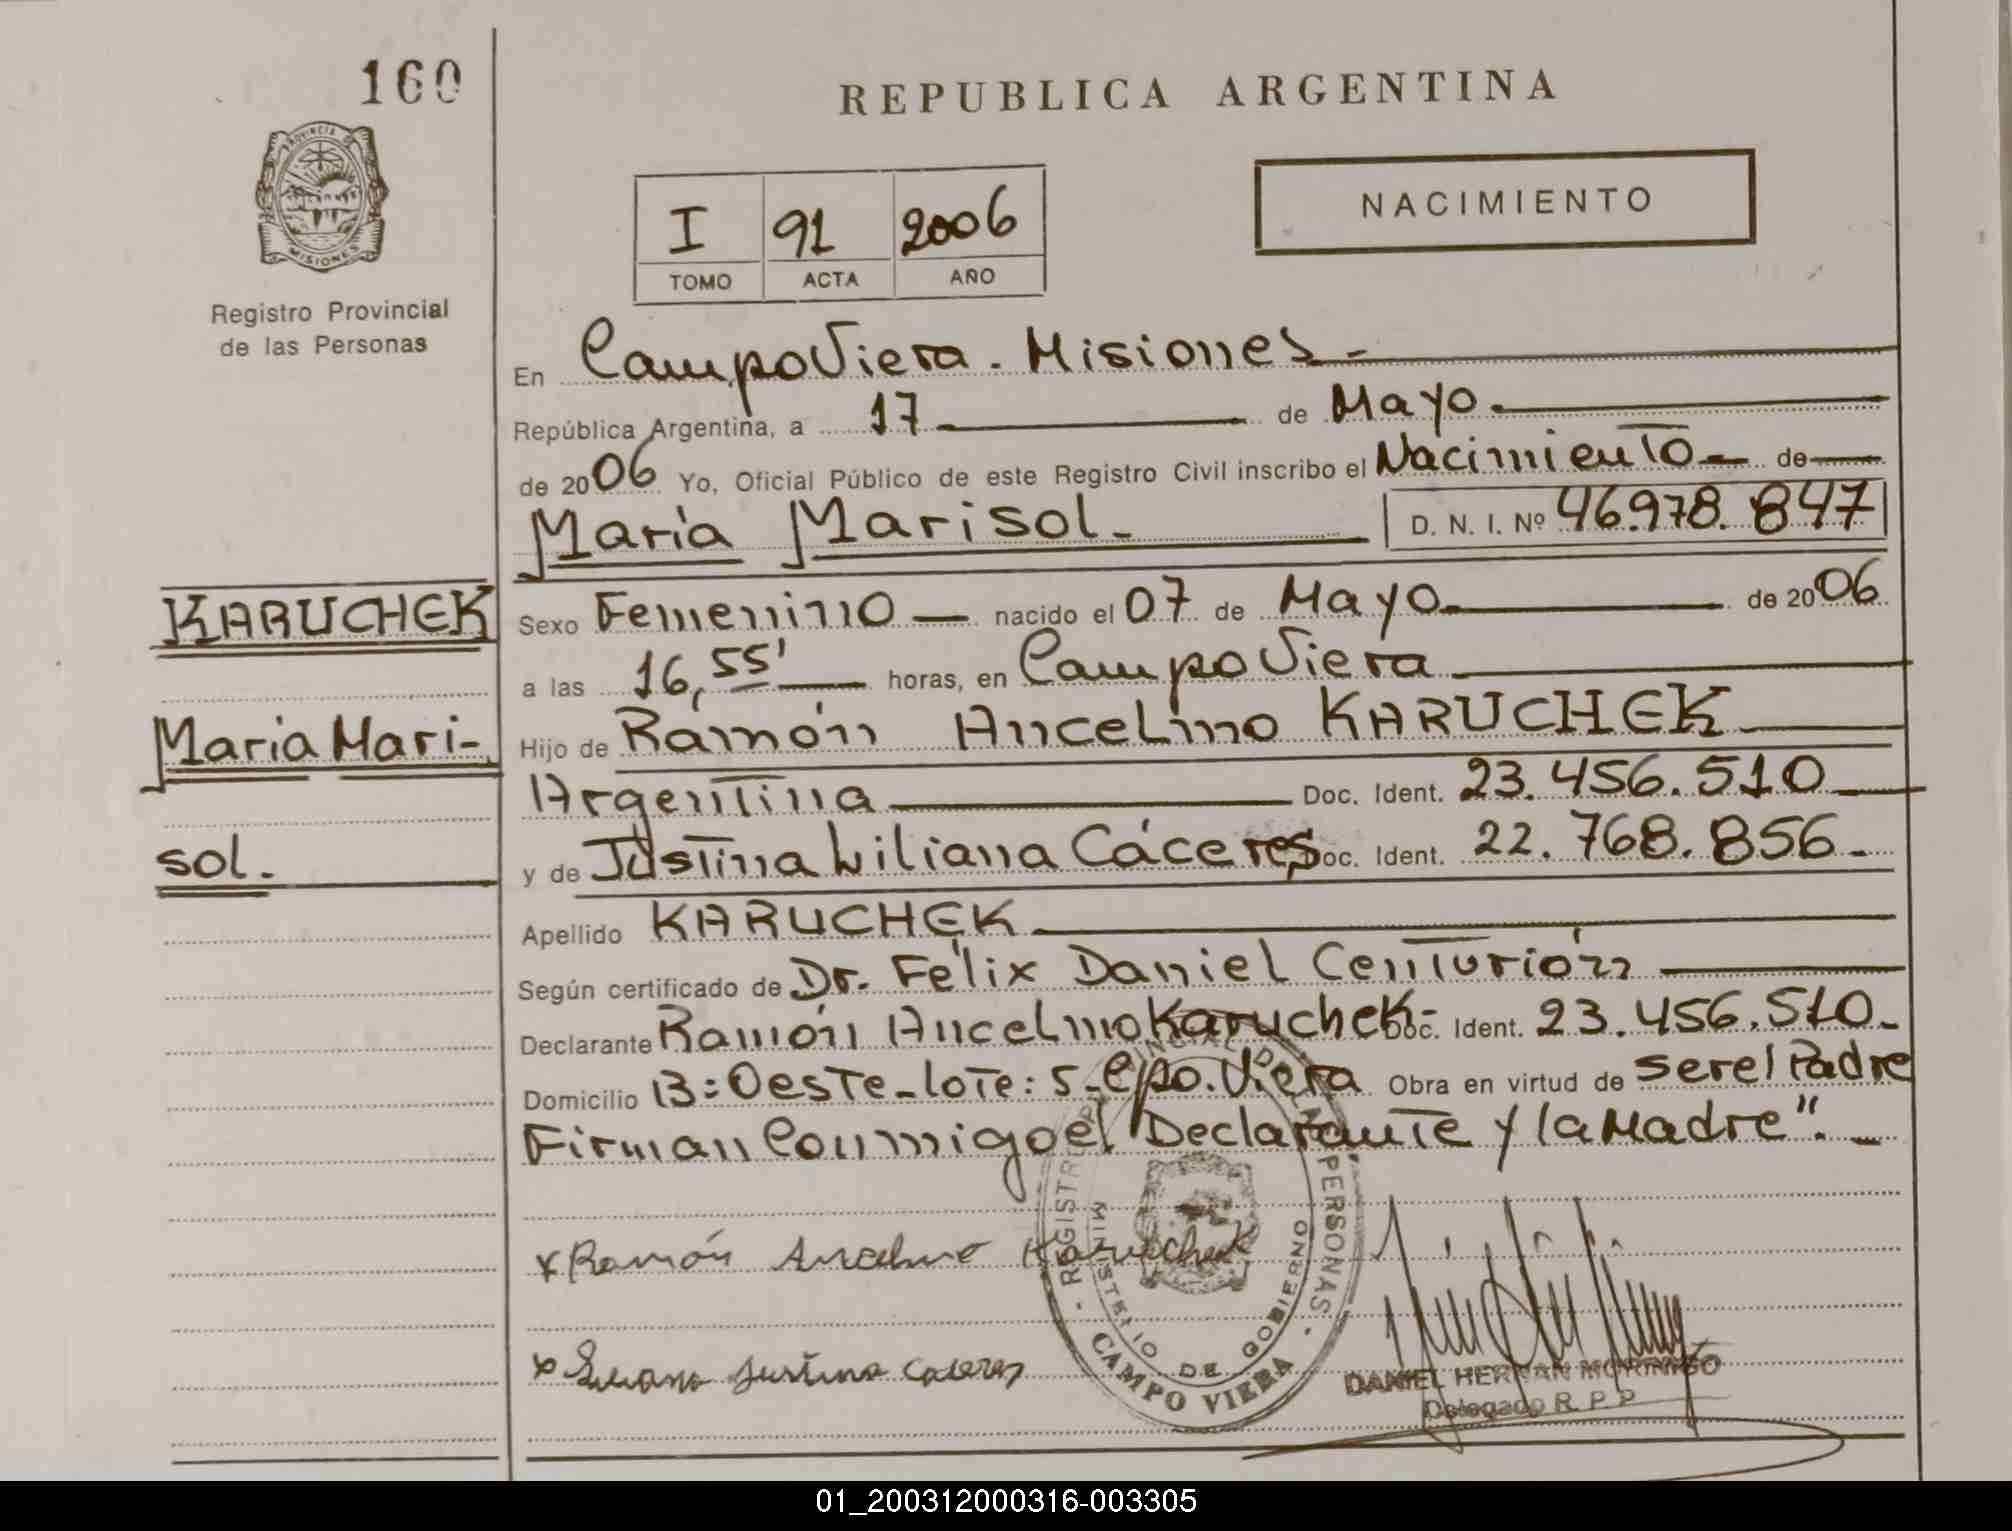 160
REPUBLICA ARGENTINA
PROVINCIA DE
MISIONES
Registro Provincial
de las Personas
I 91 2006
TOMO ACTA AÑO
NACIMIENTO
En Campo Viera. Misiones.-
República Argentina, a 17 de Mayo.
de 2006 Yo, Oficial Público de este Registro Civil inscribo el Nacimiento de
María Marisol.- D. N. I. Nº 46.978.847
KARUCHEK
María Mari-
sol.
Sexo Femenino nacido el 07 de Mayo de 2006
a las 16,55' horas, en Campo Viera
Hijo de Ramón Ancelmo KARUCHEK
Argentina Doc. Ident. 23.456.510
y de Justina Liliana Cáceres Doc. Ident. 22.768.856.-
Apellido KARUCHEK
Según certificado de Dr. Félix Daniel Centurión
Declarante Ramón Ancelmo Karuchek- Doc. Ident. 23.456.510.-
Domicilio B:Oeste-lote:5-Cpo.Viera Obra en virtud de ser el Padre
Firman Conmigo el Declarante y la Madre".-
x Ramón Ancelmo Karuchek
x Liliana Justina Caceres
REGISTRO PROVINCIAL DE LAS PERSONAS
MINISTERIO DE GOBIERNO
CAMPO VIERA
DANIEL HERNAN
Delegado R. P. P.
01_200312000316-003305